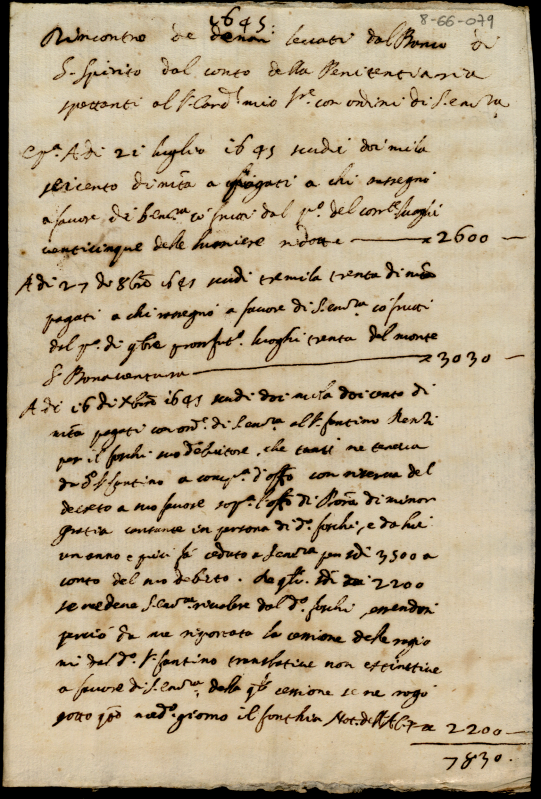 8-66-079
1645:
Rincontro de denari levati dal Banco di
S. Spirito dal conto della Penitentiaria
spettanti al S. Card. mio Sre con ordini di S. em.za
A di 21 luglio 1645 scudi doi mila
seicento di mta pagati a chi assegnò
a favore di S. em.za co frutti dal po. del corrte luoghi
venticinque delle lumiere ridotte — 2600 —
A di 27 de 8bre 1645 scudi tremila trenta di mta
pagati a chi assegnò a favore di S. em.za co frutti
dal po. di 9bre pross. fut. luoghi trenta del monte
S. Bonaventura — 3030 —
A di 16 di Xbre 1645 scudi doi mila doicento di
mta pagati con ord. di S. em.za al S. fantino Renzi
per il foschi suo debitore, che tanti ne teneva
do. S. fantino a comp. d'offo con riserva del
decreto a suo favore sopra l'offo di di minor
gratia cantante in persona di do. foschi, e da lui
un anno e ceduto a S. em.za per sdi 3500 a
conto del suo debito. de qli sdi 2200
se ne deve S. em.za rivalere dal do. foschi, essendosi
perciò da me riportata la cessione delle ragio
ni dal do. S. fantino translative non estintive
a favore di S. em.za, della qle cessione se ne rogò
sotto qto do. giorno il fonthia Not. dell'A.C. 2200 —
7830.